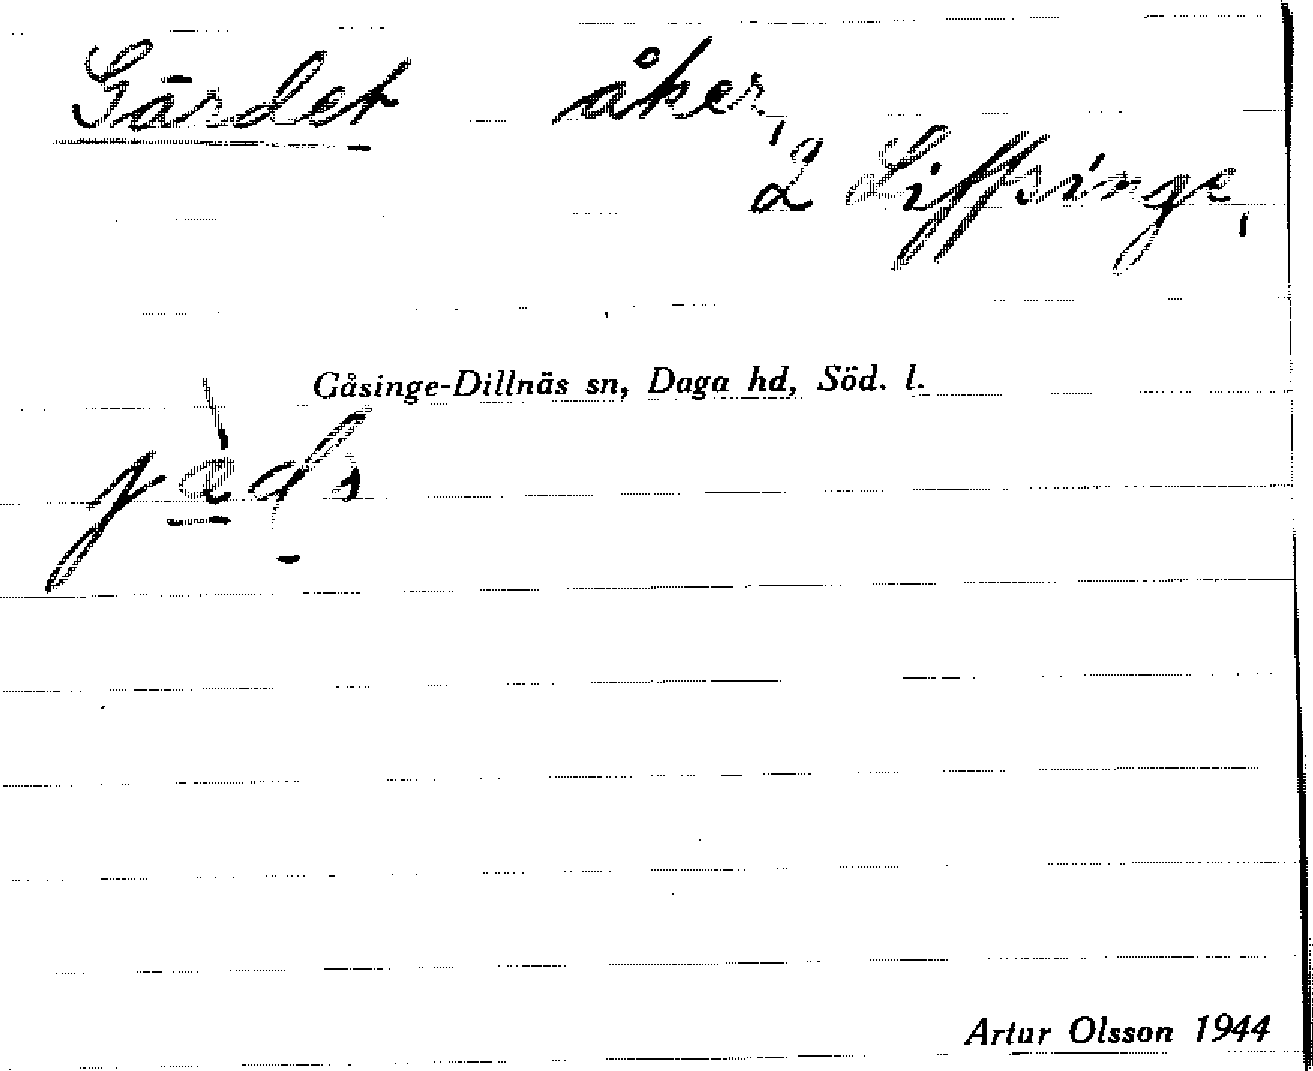 Gärdet åker,
2 Liffsinge,
Gåsinge-Dillnäs sn, Daga hd, Söd. l.
Artur Olsson 1944